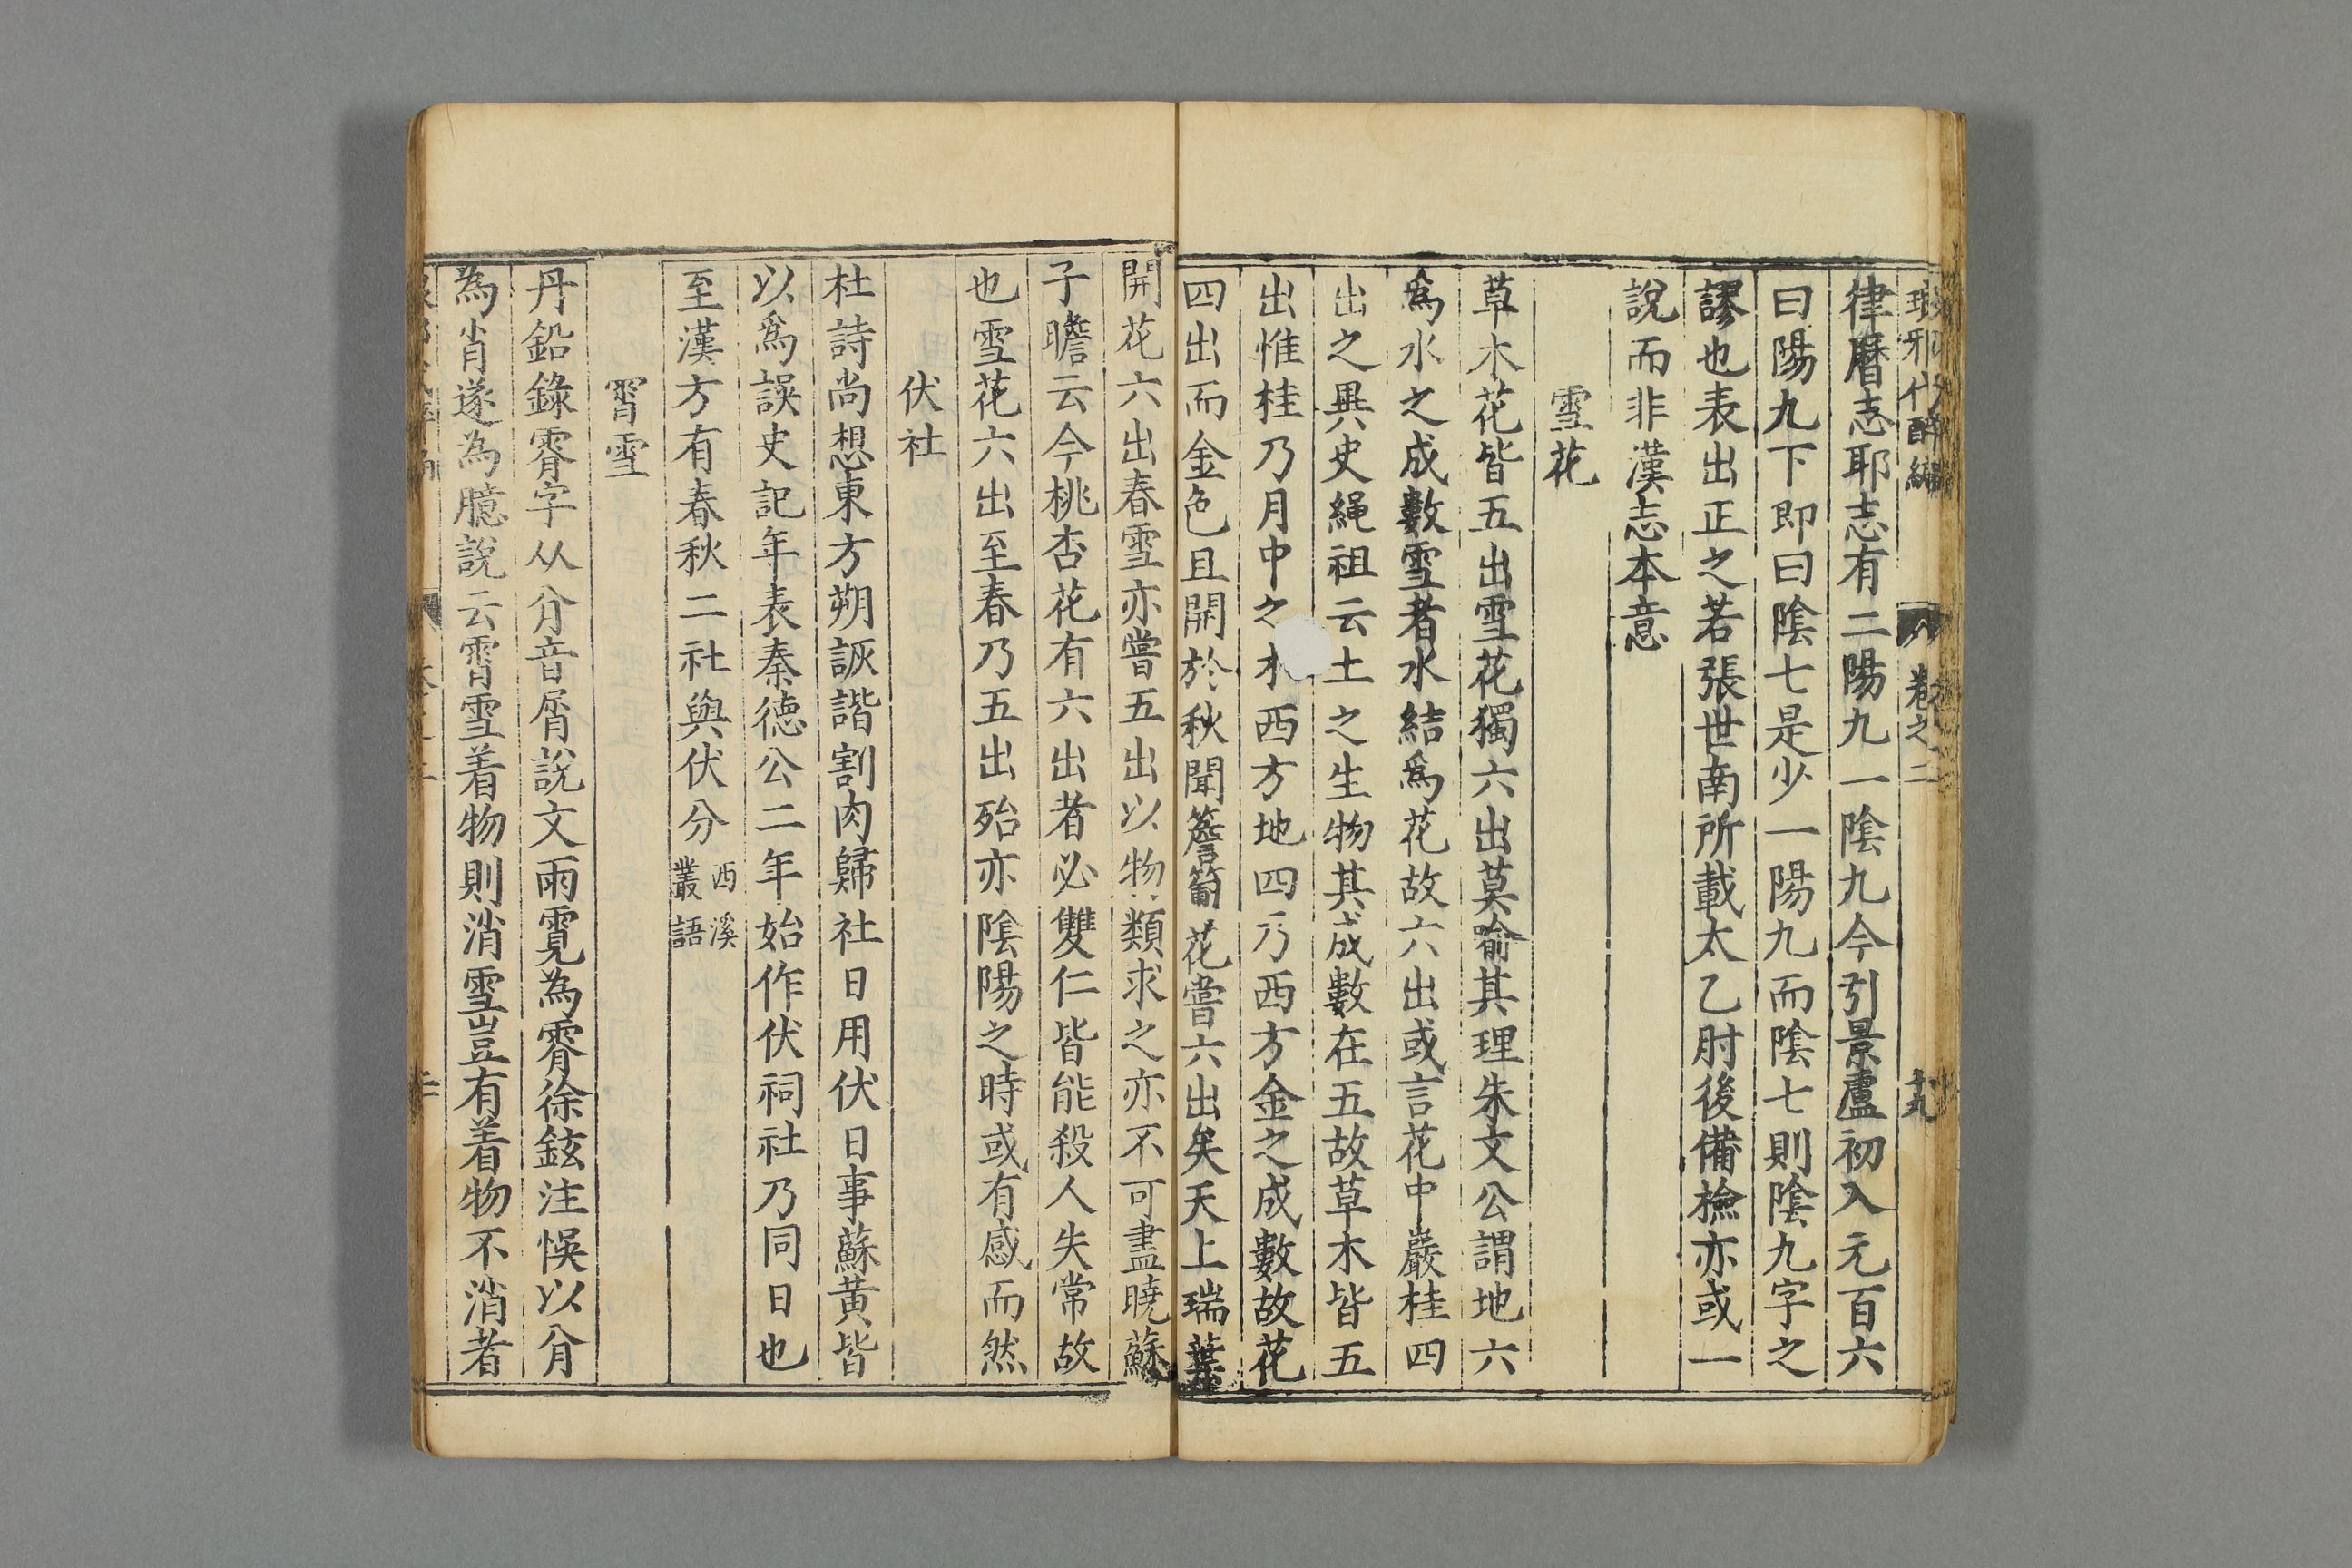 瑯邪代醉編 卷之二 十九
律曆志耶志有二陽九一陰九今引景盧初入元百六
曰陽九下即曰陰七是少一陽九而陰七則陰九字之
謬也表出正之若張世南所載太乙肘後備檢亦或一
說而非漢志本意
雪花
草木花皆五出雪花獨六出莫喻其理朱文公謂地六
爲水之成數雪者水結爲花故六出或言花中巖桂四
出之異史繩祖云土之生物其成數在五故草木皆五
出惟桂乃月中之木西方地四乃西方金之成數故花
四出而金色且開於秋聞簷蔔花嘗六出矣天上瑞葉
開花六出春雪亦嘗五出以物類求之亦不可盡曉蘇
子瞻云今桃杏花有六出者必雙仁皆能殺人失常故
也雪花六出至春乃五出殆亦陰陽之時或有感而然
伏社
杜詩尚想東方朔詼諧割肉歸社日用伏日事蘇黃皆
以爲誤史記年表秦德公二年始作伏祠社乃同日也
至漢方有春秋二社與伏分西溪叢語
霄雪
丹鉛錄霄字从肖音屑說文雨霓為霄徐鉉注悞以肖
為肖遂為臆說云霄雪着物則消雪豈有着物不消者